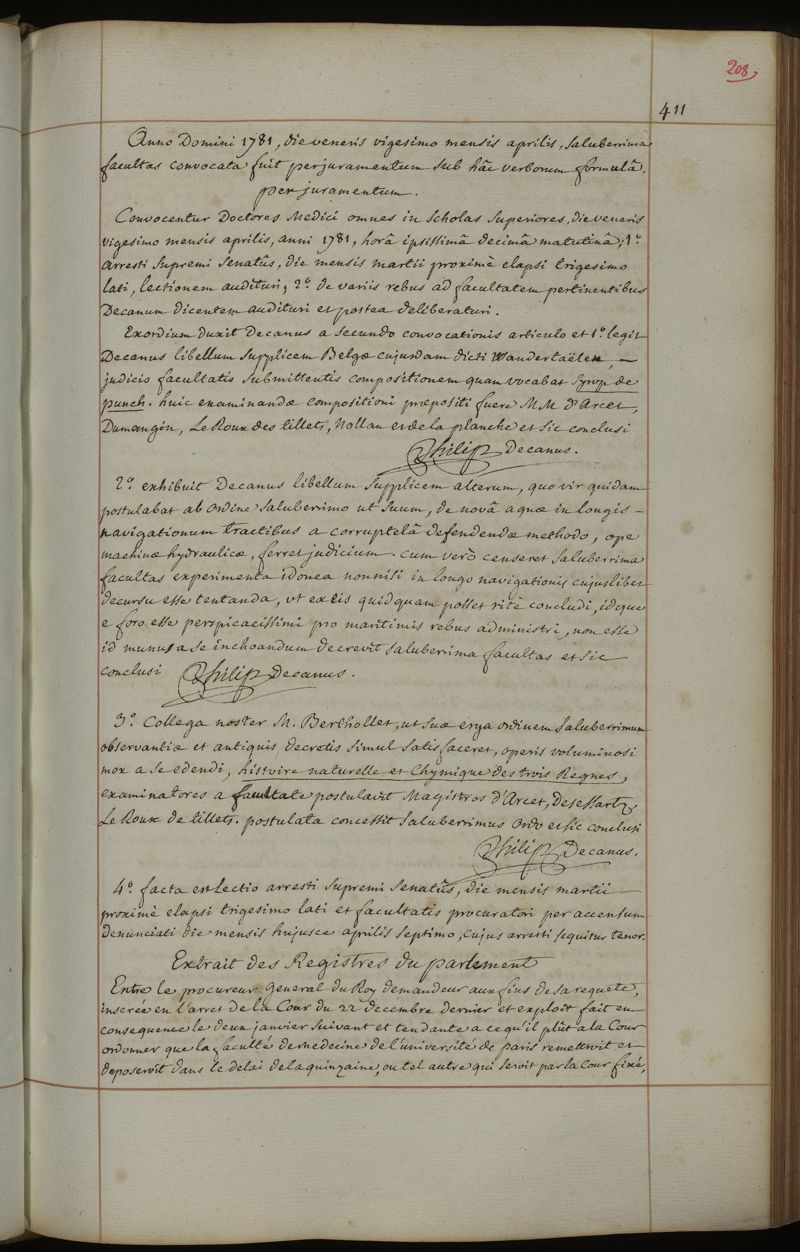 208
411
Anno Domini 1781, die veneris vigesimo mensis aprilis, saluberrima
facultas convocata fuit per juramentum sub hâc verborum formulâ.
per juramentum.
Convocentur Doctores Medici omnes in Scholas Superiores, die veneris
vigesimo mensis aprilis, anni 1781, horâ ipsissimâ decimâ matutinâ; 1.°
arresti Supremi Senatûs, die mensis martii proximè elapsi trigesimo
lati, lectionem audituri; 2.° de variis rebus ad facultatem pertinentibus
Decanum dicentem audituri et postea deliberaturi.
Exordium duxit Decanus a secundo convocationis articulo et 1.° legit
Decanus libellum supplicem Belgæ cujusdam dicti Wandertaëlen, —
judicio facultatis submittentis compositionem quam vocabat syrop de
punch. huic examinandæ compositioni præpositi fuere M.M. d'Arcet,
Dumangin, Le Roux des tillets, Nollan et de la planche et sic conclusi
Philip Decanus.
2.° exhibuit Decanus libellum supplicem alterum, quo vir quidam
postulabat ab ordine saluberrimo ut suum, de novâ aquæ in longis -
navigationum tractibus a corruptelâ defendendæ methodo, ope
machinæ hydraulicæ, ferret judicium. cum verò censeret saluberrima
facultas experimenta idonea nonnisi in longo navigationis cujuslibet
decursu esse tentanda, ut ex eis quidquam posset ritè concludi, idque
e foro esse perspicacissimi pro maritimis rebus administri, non esse
id munus a se inchoandum decrevit saluberrima facultas et sic
conclusi Philip Decanus.
3.° Collega noster M. Berthollet, ut suæ erga ordinem saluberrimum
observantiæ et antiquis decretis simul satisfaceret, operis voluminosi
mox a se edendi, histoire naturelle et Chymique des trois Regnes,
examinatores a facultate postulavit Magistros d'Arcet, Desessartz
Le Roux de tillets. postulata concessit saluberrimus ordo et sic conclusi
Philip Decanus.
4.° facta est lectio arresti Supremi Senatûs, die mensis martii —
proximè elapsi trigesimo lati et facultatis procuratori per accensum
denunciati die mensis hujusce aprilis septimo, cujus arresti sequitur tenor.
Extrait des Registres du parlement
Entre le procureur General du Roy demandeur aux fins de sa requete,
inserée en l'arret de la Cour du 22 decembre dernier et exploit fait en
consequence le deux janvier suivant et tendante a ce qu'il plût a la Cour
ordonner que la faculté de medecine de l'université de paris remettroit et
deposeroit dans le delai de la quinzaine, ou tel autre qui seroit par la Cour fixé,